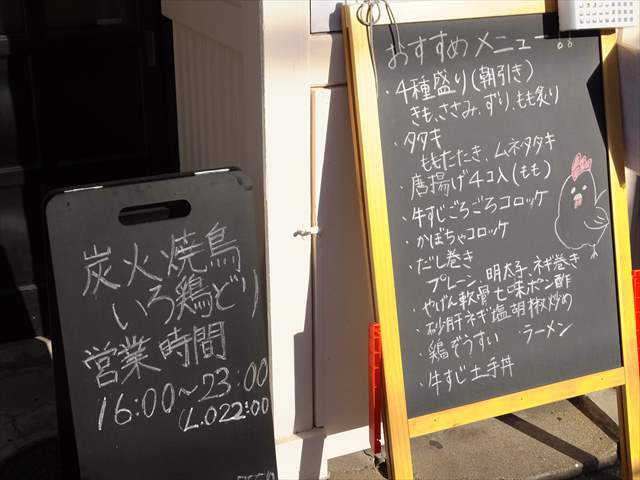 炭火焼鳥
いろ鶏どり
営業時間
16:00~23:00
(L.O22:00)
おすすめメニュー
・4種盛り(朝引き)
きも、ささみ、ずり、もも炙り
・タタキ
ももたたき、ムネタタキ
・唐揚げ4コ入(もも)
・牛すじごろごろコロッケ
・かぼちゃコロッケ
・だし巻き
プレーン、明太子、ネギ巻き
・やげん軟骨七味ポン酢
・砂肝ネギ塩胡椒炒め
鶏ぞうすい ラーメン
・牛すじ土手丼